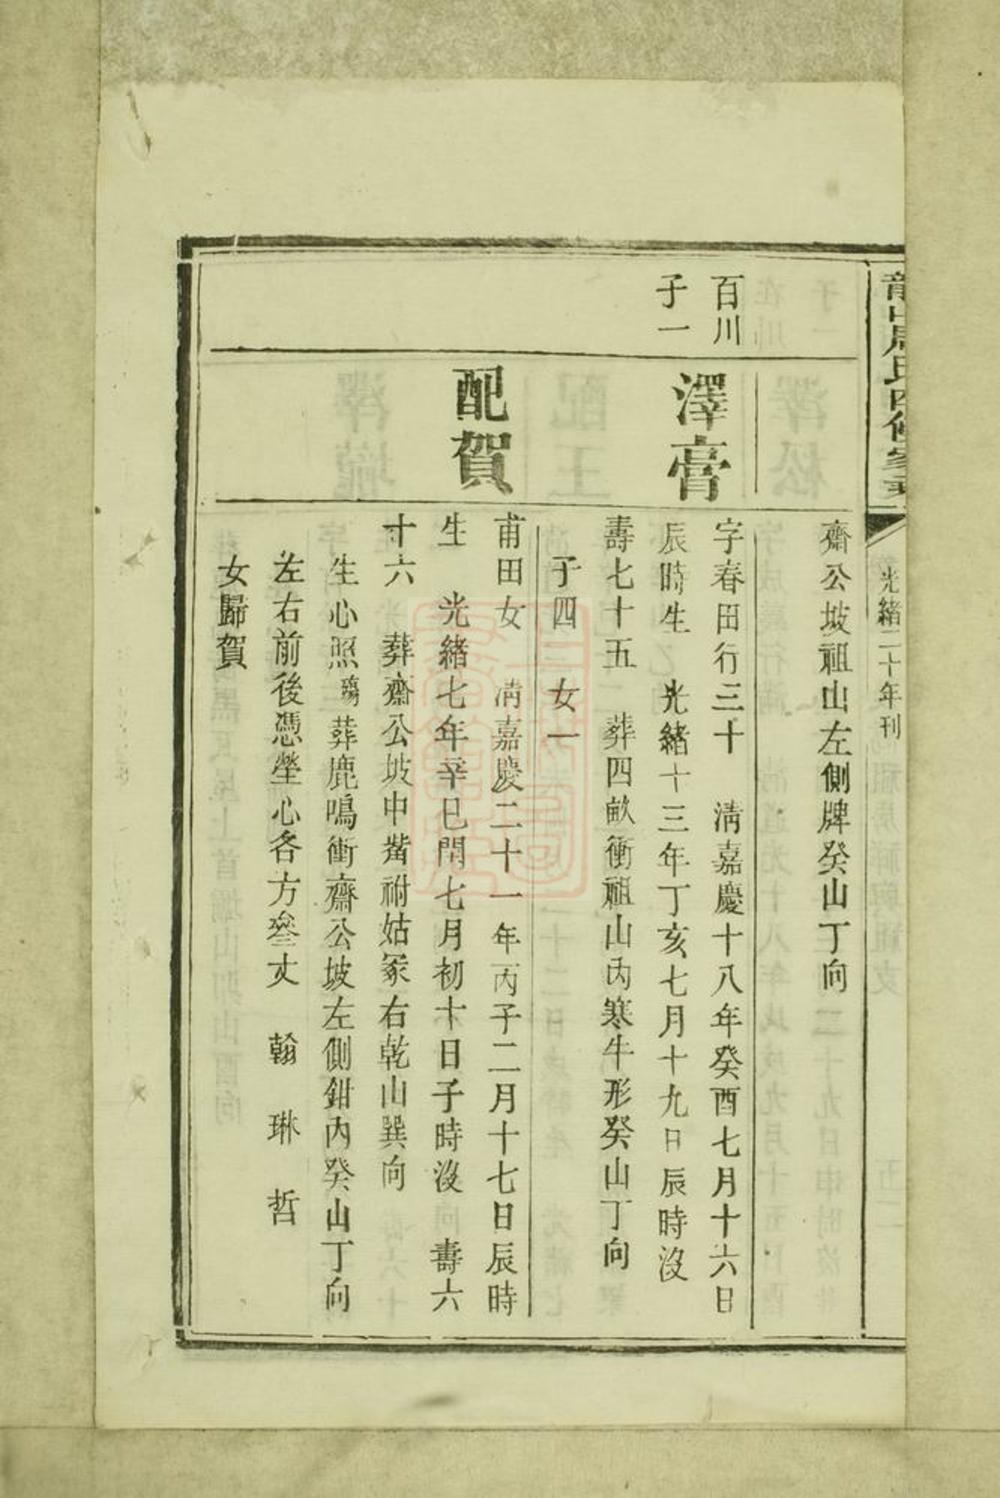 龍山周氏四修家
光緒二十年刊
齋公坡祖山左側牌癸山丁向
百川
子一
澤膏
字春田行三十 清嘉慶十八年癸酉七月十六日
辰時生 光緒十三年丁亥七月十九日辰時沒
壽七十五 葬四畝衝祖山內寒牛形癸山丁向
子四 女一
配賀
甫田女 清嘉慶二十一年丙子二月十七日辰時
生 光緒七年辛巳閏七月初十日子時沒 壽六
十六 葬齋公坡中觜祔姑冢右乾山巽向
生心照 葬鹿鳴衝齋公坡左側鉗內癸山丁向
左右前後憑塋心各方叄丈 翰 琳 哲
女歸賀